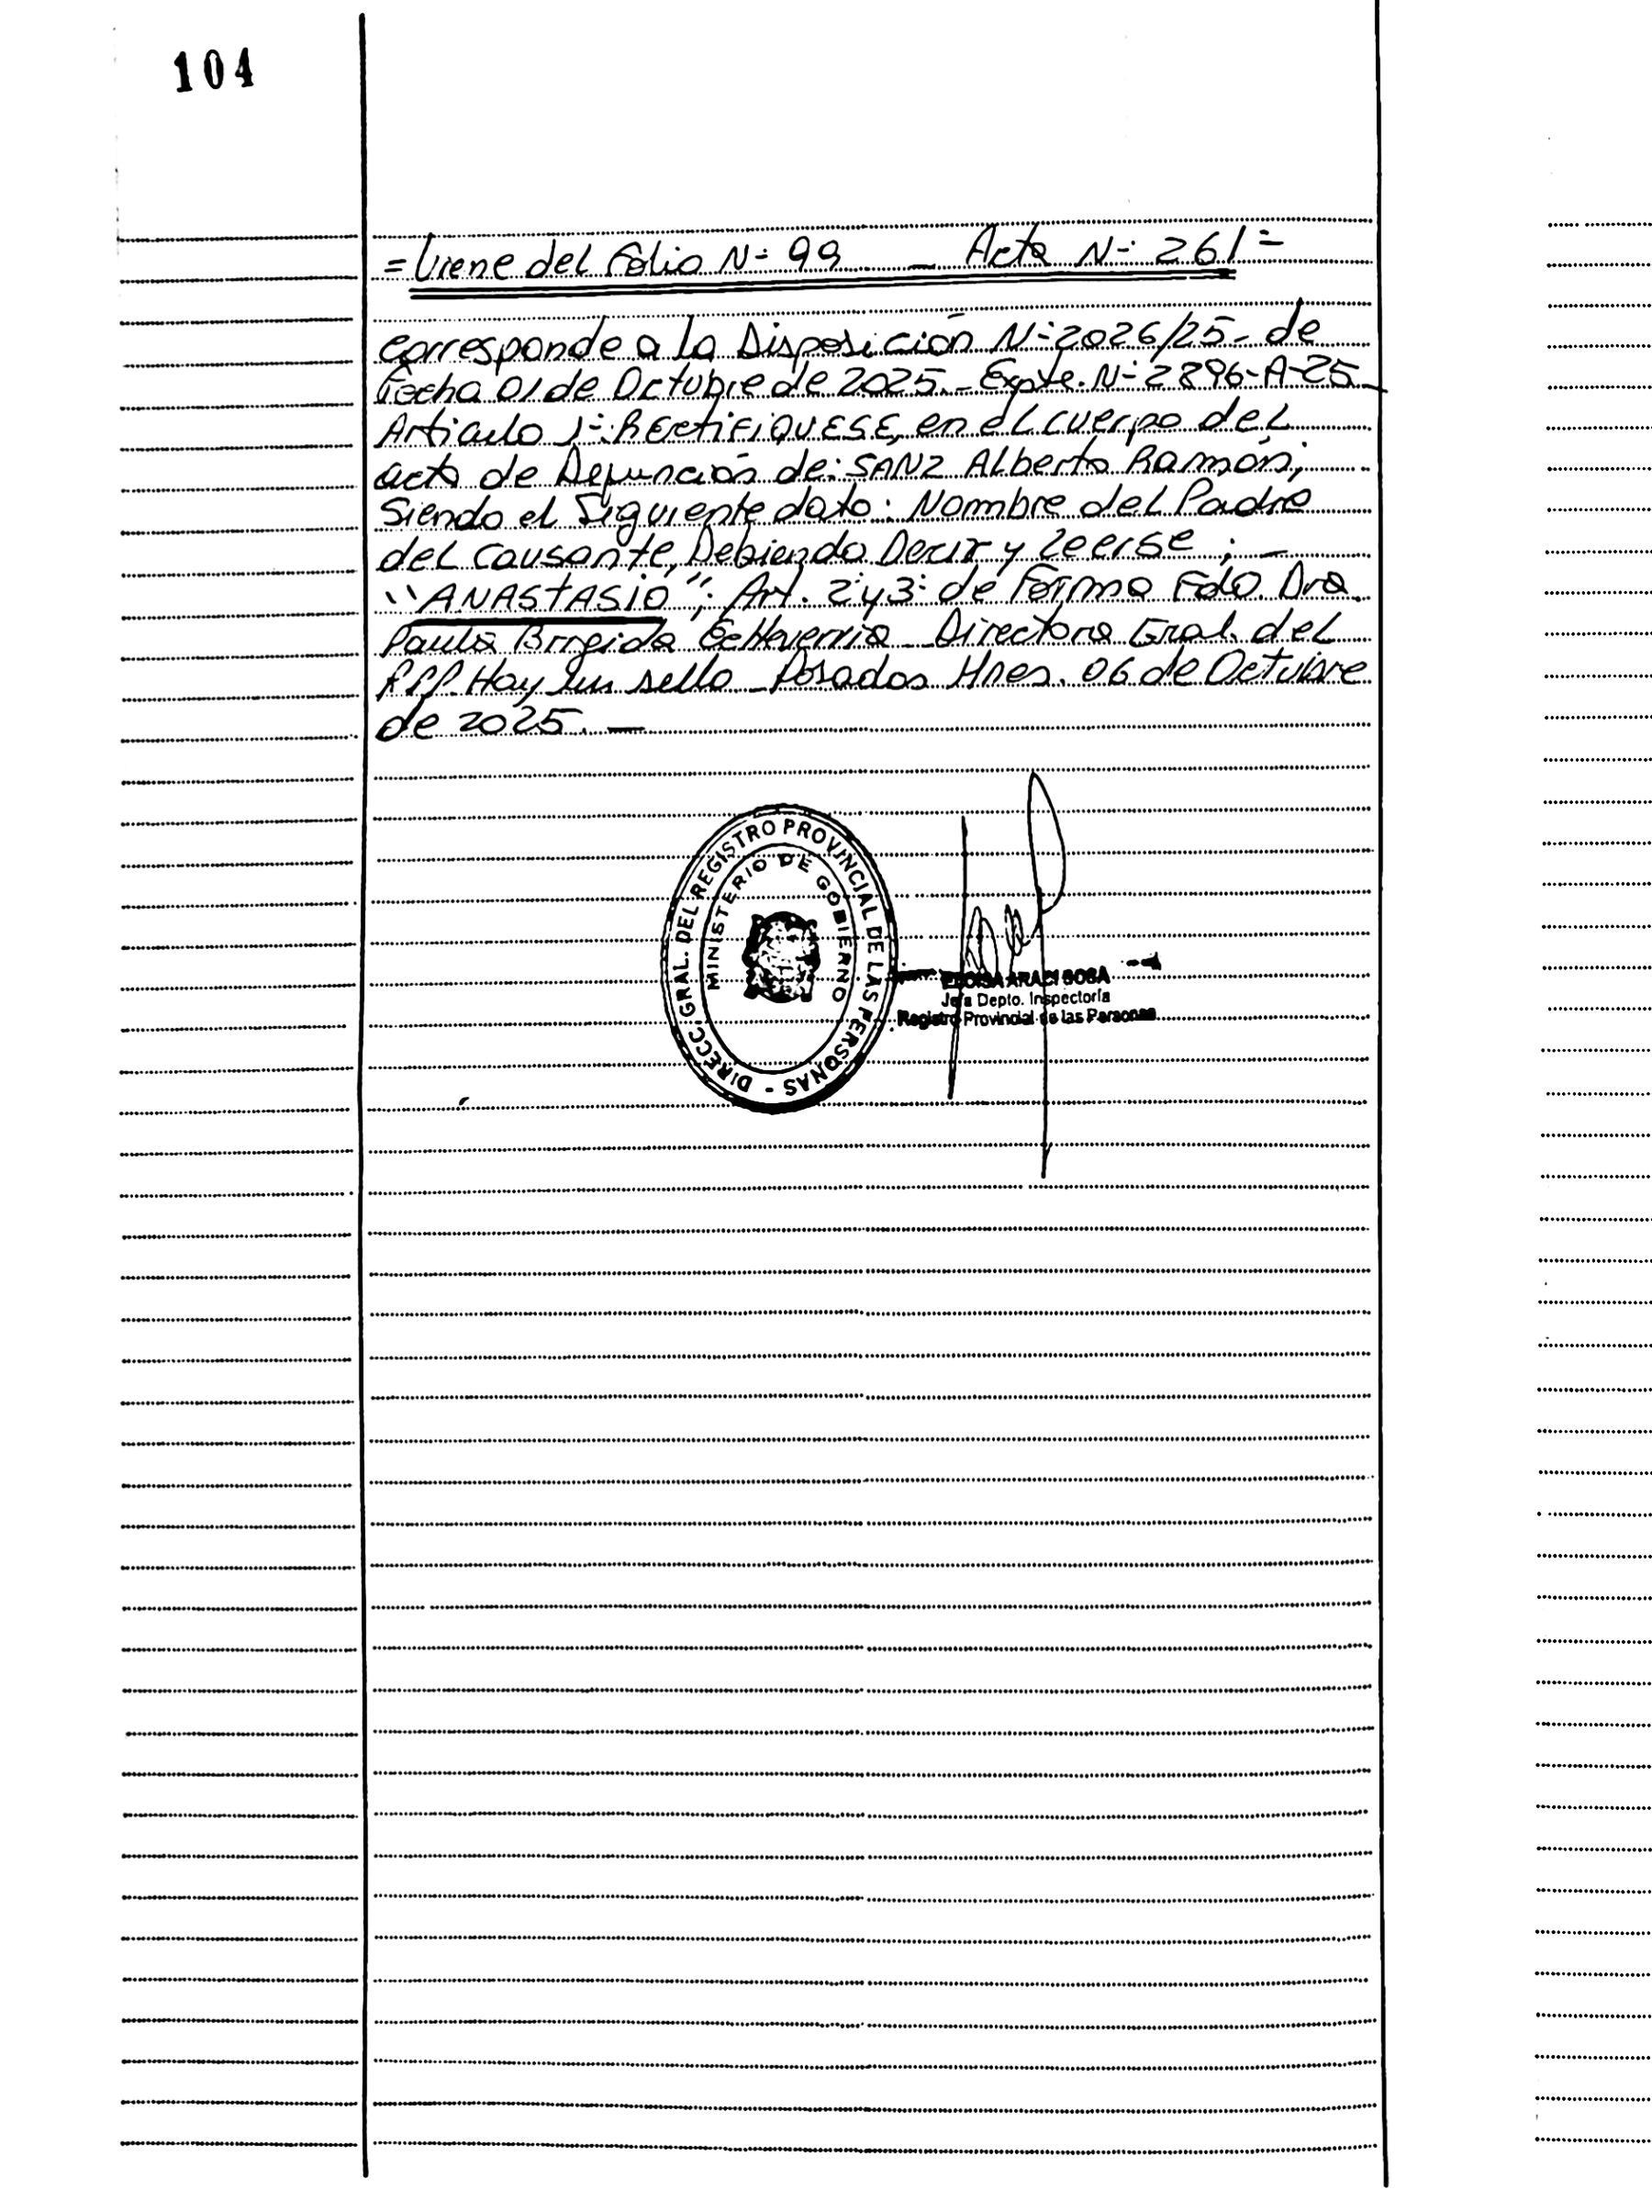 104
= Viene del Folio N-: 99 _ Acta N-: 261 =
corresponde a la Disposición N-: 2026/25 - de
Fecha 01 de Octubre de 2025. - Expte. N-: 2896-A-25 -
Articulo 1-: RECtiFiQUESE, en el cuerpo del
acta de Defuncion de: SANZ Alberto Ramón;
Siendo el Siguiente dato: Nombre del Padre
del causante, Debiendo Decir y Leerse ; -
"ANAStASiO"; Art. 2: y 3: de Forma Fdo. Dra.
Paula Brigida Echeverria - Directora Gral. del
RPP. Hay un sello - Posadas Mnes. 06 de Octubre
de 2025. -
DIRECC. GRAL. DEL REGISTRO PROVINCIAL DE LAS PERSONAS -
MINISTERIO DE GOBIERNO
ARACI SOSA
Jefa Depto. Inspectoría
Registro Provincial de las Personas